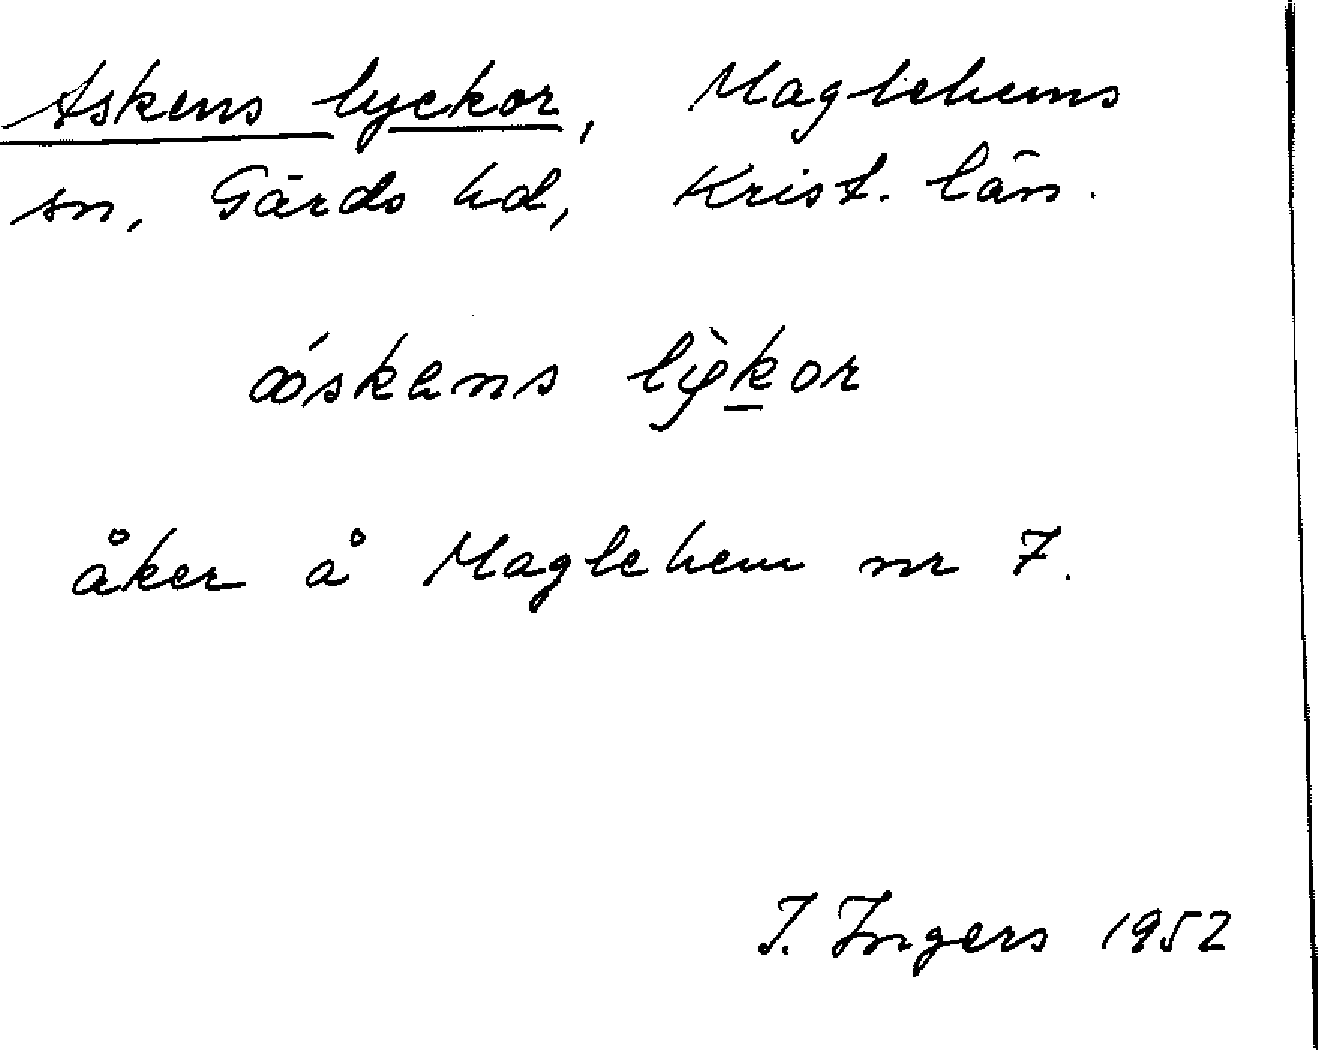 Askens lyckor, Maglehems
sn, Gärds hd, Krist. län.
áskens lỳkor
åker å Maglehem nr 7.
I. Ingers 1952